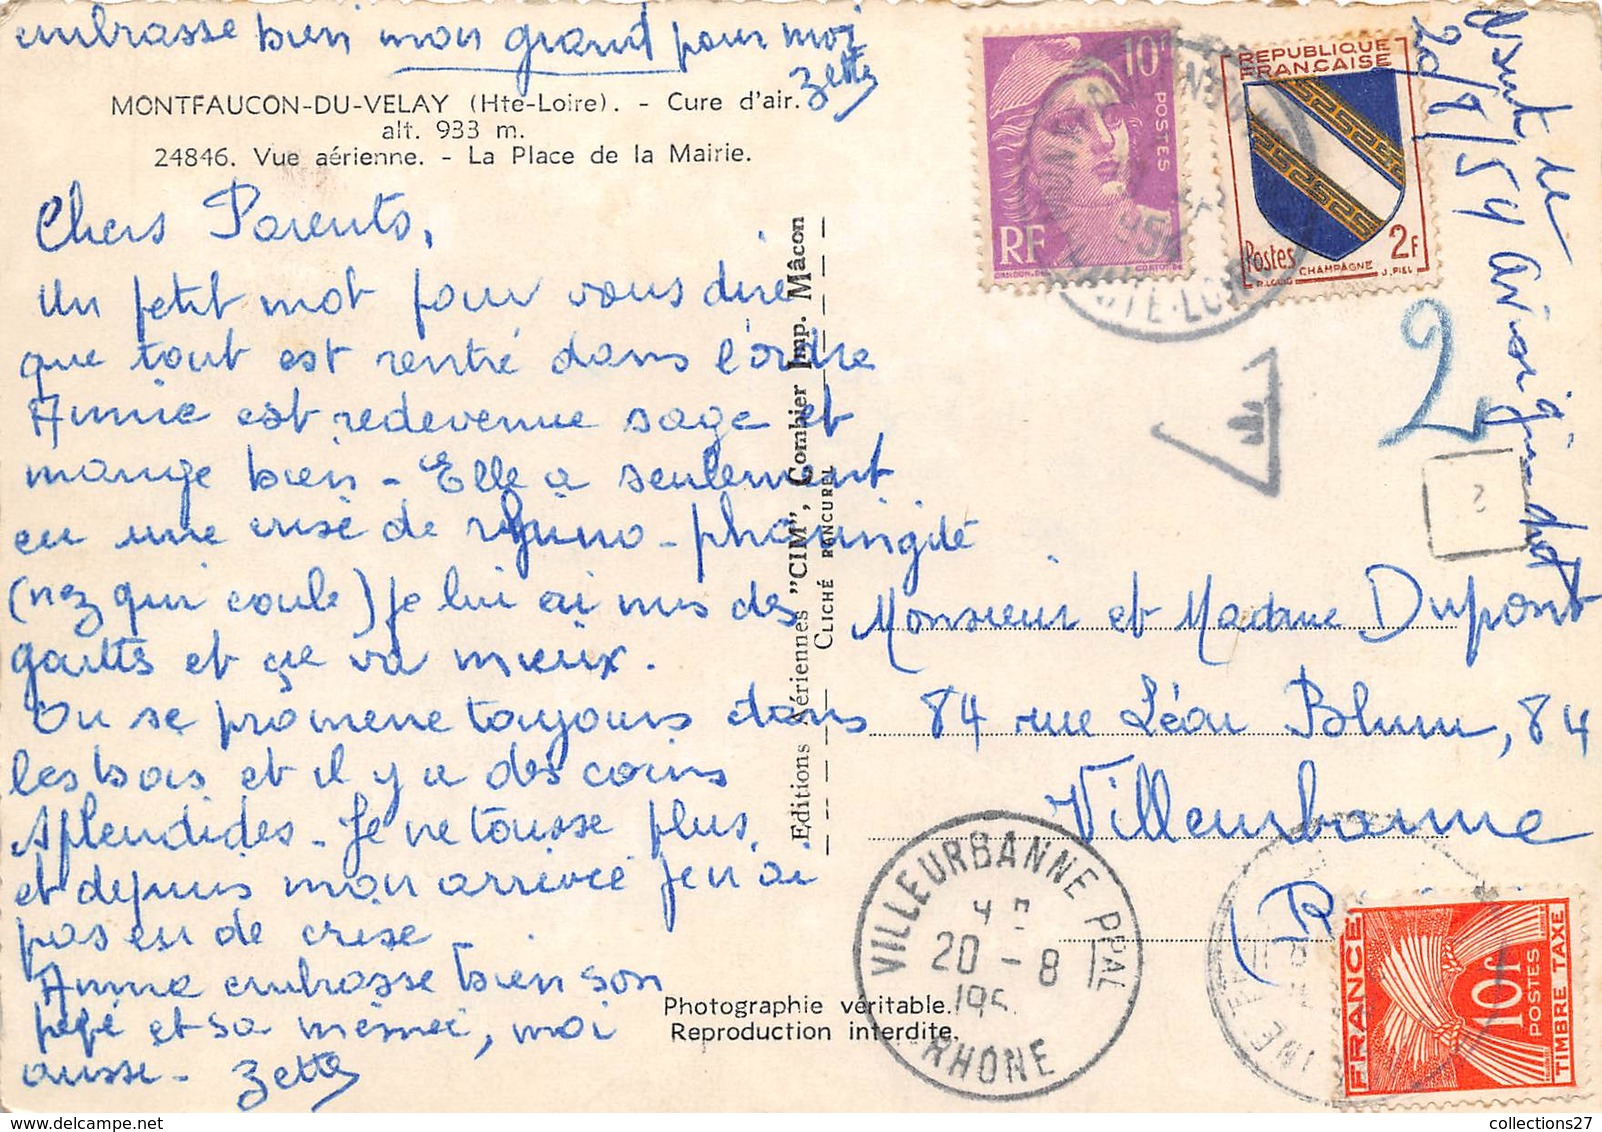 embrasse bien mon grand pour moi
Zette
MONTFAUCON-DU-VELAY (Hte-Loire). - Cure d'air.
alt. 933 m.
24846. Vue aérienne. - La Place de la Mairie.
Chers Parents,
Un petit mot pour vous dire
que tout est rentré dans l'ordre
Annie est redevenue sage et
mange bien - Elle a seulement
eu une crise de rhino-pharingite
(nez qui coule) je lui ai mis des
gouttes et ça va mieux.
On se promene toujours dans
les bois et il y a des coins
splendides - Je ne tousse plus
et depuis mon arrivée je n'ai
pas eu de crise
Annie embrasse bien son
pépé et sa mémée, moi
aussi - Zette
Editions Aériennes "CIM", Combier Imp. Mâcon
CLICHÉ RANCUREL
Photographie véritable.
Reproduction interdite.
10F
POSTES
RF
REPUBLIQUE
FRANÇAISE
Postes
2F
CHAMPAGNE
R. LOUIS
J. PIEL
HAUTE-LOIRE
2
Absent le
20/8/54
Monsieur et Madame Dupont
84 rue Léon Blum, 84
Villeurbanne
(R
VILLEURBANNE PPAL
20 - 8
195
RHONE
FRANCE
10f
POSTES
TIMBRE TAXE
collections27